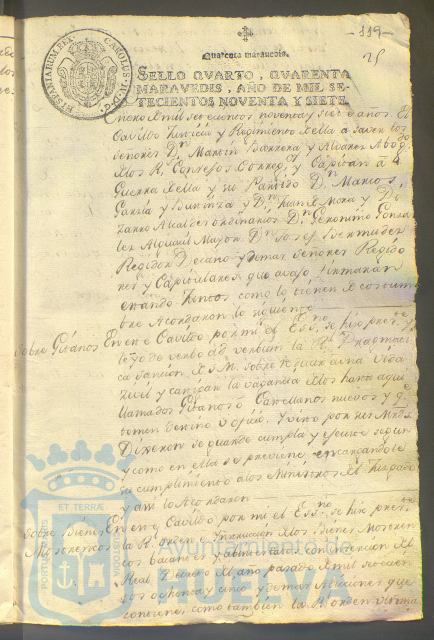 119
25
Quarenta maravedis.
SELLO QVARTO, QVARENTA
MARAVEDIS, AÑO DE MIL SE-
TECIENTOS NOVENTA Y SIETE.
HISPANIARUM REX CAROLUS IV D G
Enero de mil setecientos noventa y siete años. El
Cavildo Justicia y Regimiento de ella a saver los
señores Dn. Martin Barrera y Alvarez Abog
de los Rs. Consejos Correg.or y Capitan a
Guerra de ella y su Partido Dn. Marcos
Garzia y Dn. Juan de Mora y
Alcaldes ordinarios Dn. Geronimo Gonza
lez Alguacil Mayor Dn. Josef Bermudez
Regidor Decano y demas señores Regido
res y Capitulares que avajo firmarán
estando juntos como lo tienen de costum
bre Acordaron lo siguiente
Sobre Gitanos En este Cavildo por mi el Ess.no se hizo pres.te
de verbo ad verbum la Rl. Pragmati
ca sancion de S.M. sobre vida
Zivil y castigar la vagancia de los hasta aqui
llamados Gitanos ó Castellanos nuevos y q.e
tomen destino u oficio, y visto por sus Mrds.
Dixeron se guarde cumpla y execute segun
y como en ella se previene encargandose
su cumplimiento a los Ministros del Juzgado
y asi lo Acordaron
Sobre Bienes Mostrencos En este Cavildo por mi el Ess.no se hizo pres.te
la R. Orden e Instruccion de los vienes Mostren
cos bacantes y abintestatos con insercion del
Real Decreto del año pasado de mil setecien
tos ochenta y cinco y demas adiciones que
contiene, como tambien la Rl. orden
PORTUS MARIS ET TERRAE CUSTODIA
Ayuntamiento de
HUELVA